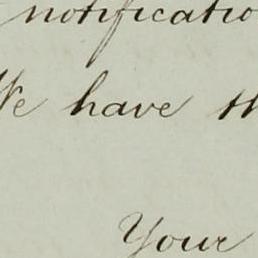 notificatio
We have th
Your